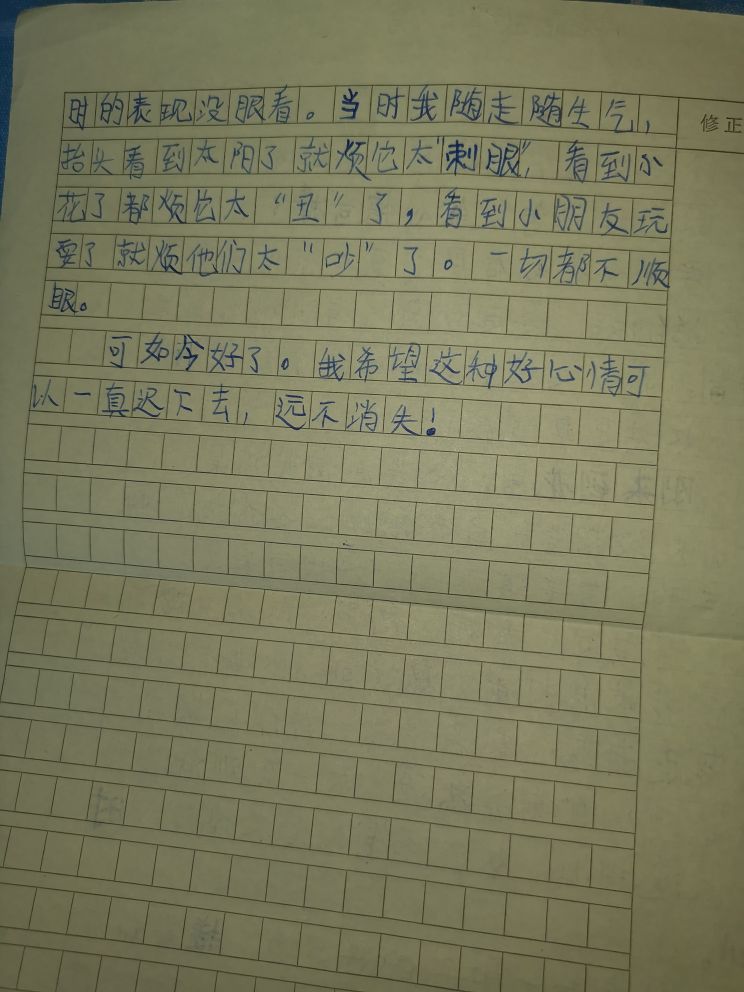 时的表现没眼看。当时我随走随生气，
修正
抬头看到太阳了就烦它太“刺眼”，看到小
花了都烦它太“丑”了，看到小朋友玩
耍了就烦他们太“吵”了。一切都不顺
眼。
可如今好了。我希望这种好心情可
以一真迟下去，远不消失！